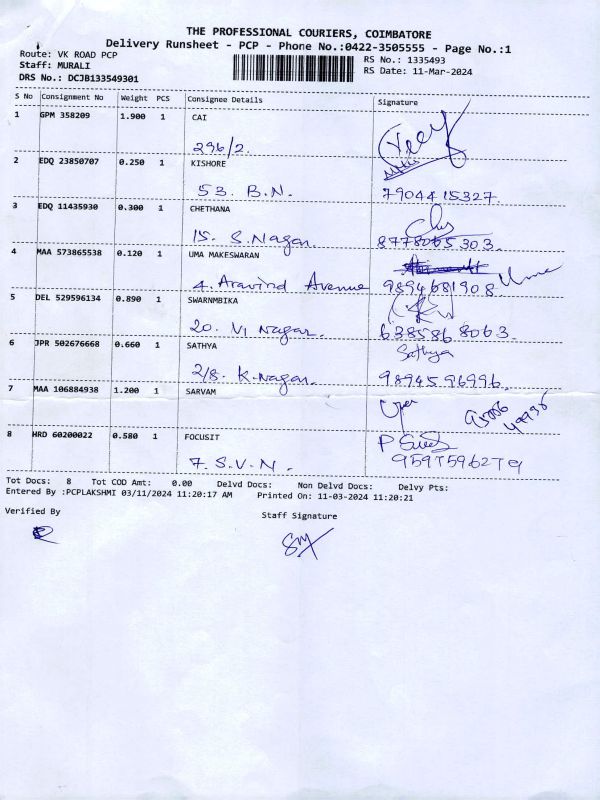 THE PROFESSIONAL COURIERS, COIMBATORE
Delivery Runsheet - PCP - Phone No.:0422-3505555 - Page No.:1
Route: VK ROAD PCP RS No.: 1335493
Staff: MURALI RS Date: 11-Mar-2024
DRS No.: DCJB133549301
S No Consignment No Weight PCS Consignee Details Signature
1 GPM 358209 1.900 1 CAI
296/2.
2 EDQ 23850707 0.250 1 KISHORE
53. B.N. 7904415327.
3 EDQ 11435930 0.300 1 CHETHANA
15. S.Nagar. 8778065303.
4 MAA 573865538 0.120 1 UMA MAKESWARAN
4. Aravind Avenue 9894681908 Uma
5 DEL 529596134 0.890 1 SWARNMBIKA
20. VI Nagar. 6385868063.
6 JPR 502676668 0.660 1 SATHYA Sathya
2/8. K.Nagar. 9894596996.
7 MAA 106884938 1.200 1 SARVAM
8 HRD 60200022 0.580 1 FOCUSIT
7. S.V.N. 9597596279
Tot Docs: 8 Tot COD Amt: 0.00 Delvd Docs: Non Delvd Docs: Delvy Pts:
Entered By :PCPLAKSHMI 03/11/2024 11:20:17 AM Printed On: 11-03-2024 11:20:21
Verified By Staff Signature